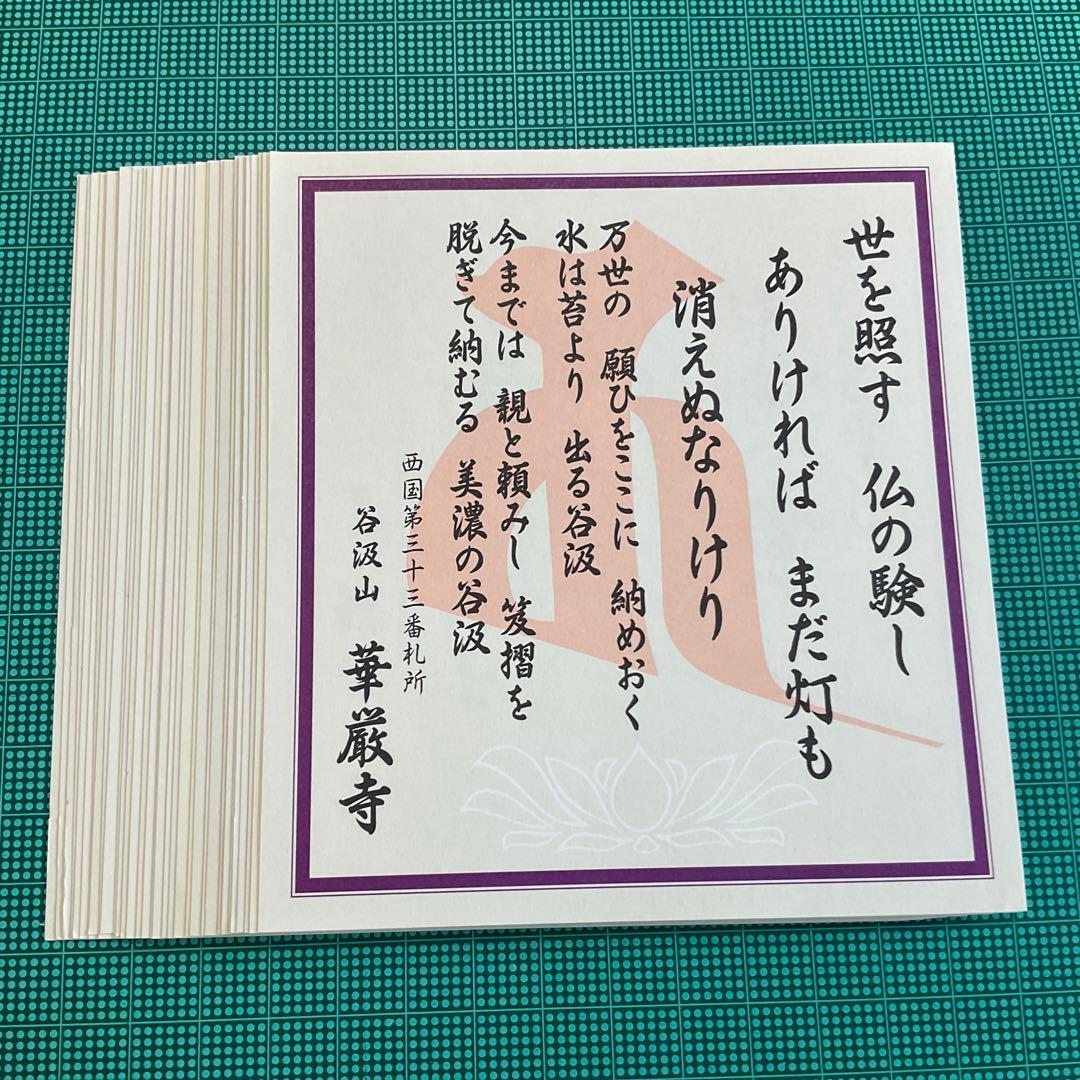 世を照す　仏の験し
ありければ　まだ灯も
消えぬなりけり
万世の　願ひをここに　納めおく
水は苔より　出る谷汲
今までは　親と頼みし　笈摺を
脱ぎて納むる　美濃の谷汲
西国第三十三番札所
谷汲山　華厳寺